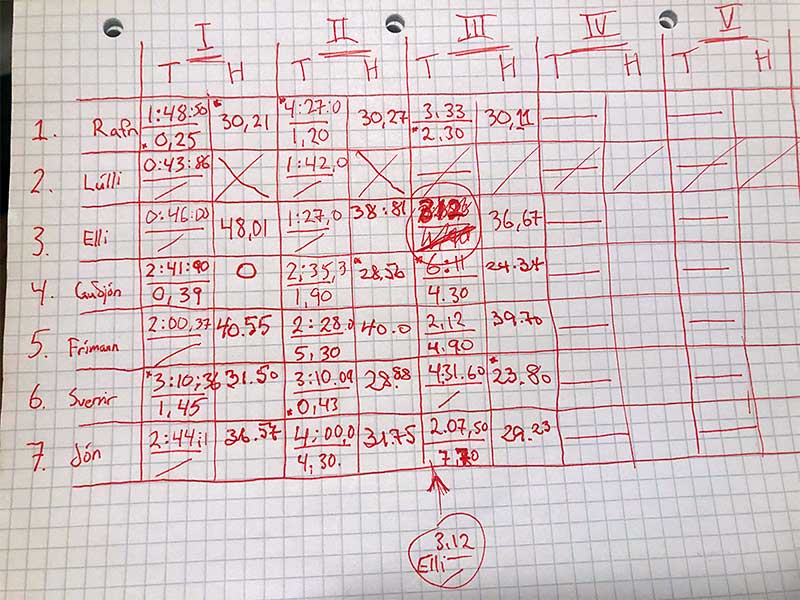 I II III IV V
T H T H T H T H T H
1. Rafn 1:48:50 *30,21 *4:27:0 30,27 3,33 30,11 —
*0,25 1,20 *2,30
2. Lúlli 0:43:86 1:42,0
3. Elli 0:46:00 48,01 1:27,0 38:81 312 36,67 —
4. Guðjón 2:41:90 0 2;35,3 *28,50 *6:11 24.34 —
0,39 1,90 4.30
5. Frímann 2:00,37 40.55 2:28.0 40.0 2,12 39.70 —
5,30 4.90
6. Sverrir *3:10;36 31.50 3:10.09 28.88 4.31.60 *23.80 —
1,45 *0,43
7. Jón 2:44;1 36.57 4;00,0 31.75 2.07,50 29.23 —
4,30.
3,12
Elli